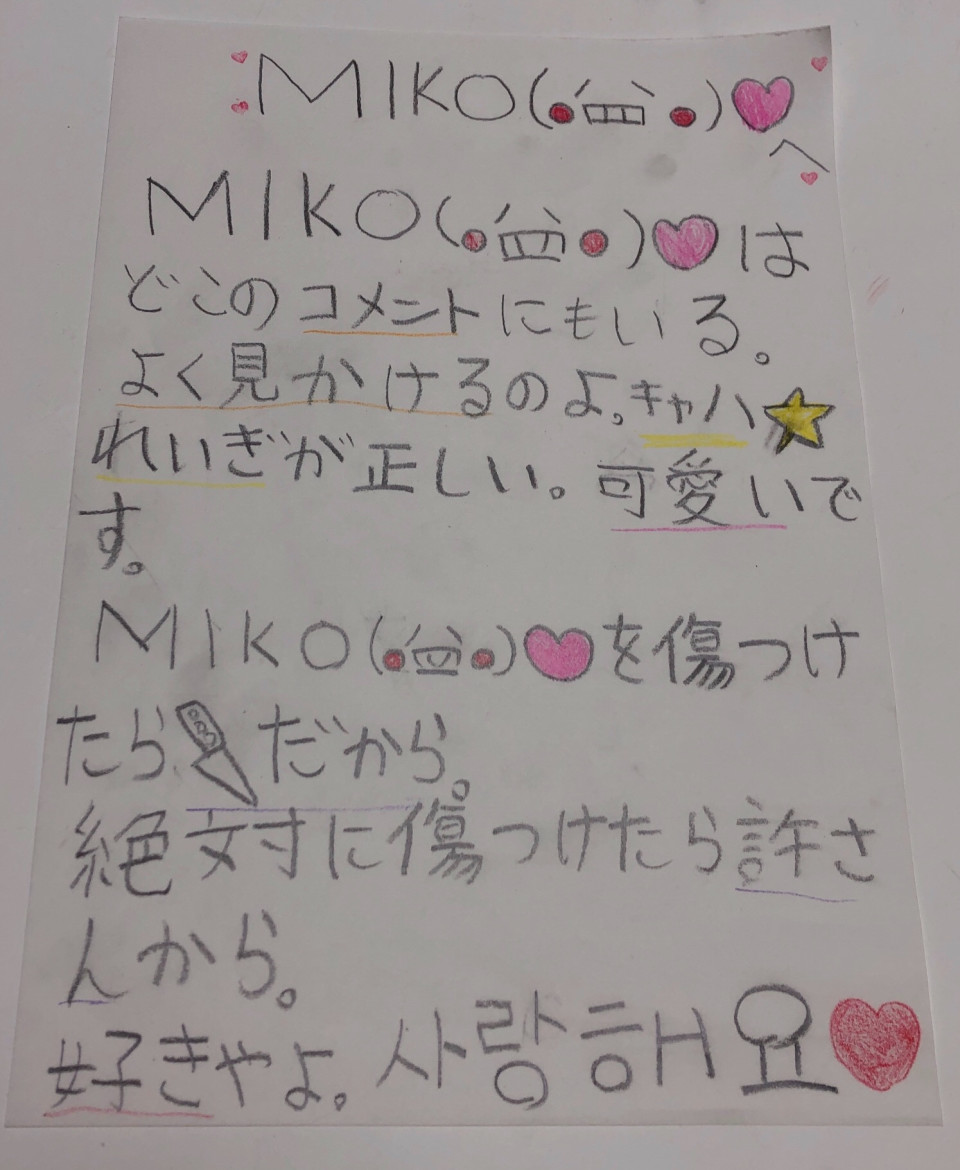 MIKO(•́ 皿 •̀)♥
へ
MIKO(•́ 皿 •̀)♥は
どこのコメントにもいる。
よく見かけるのよ。キャハ★
れいぎが正しい。可愛いで
す。
MIKO(•́ 皿 •̀)♥を傷つけ
たら🔪だから。
絶対に傷つけたら許さ
んから。
好きやよ。사랑해요♥